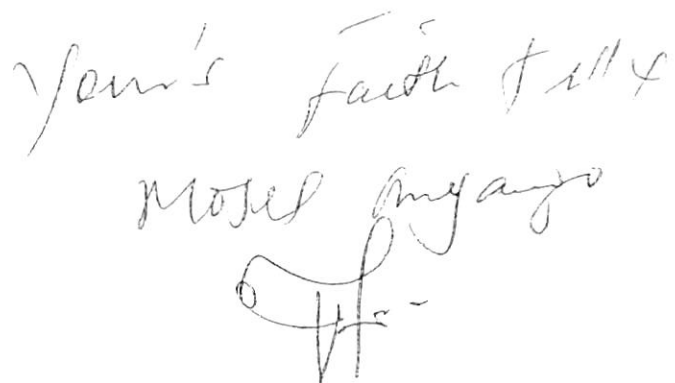 Your's Faith fully
Moses Onyango